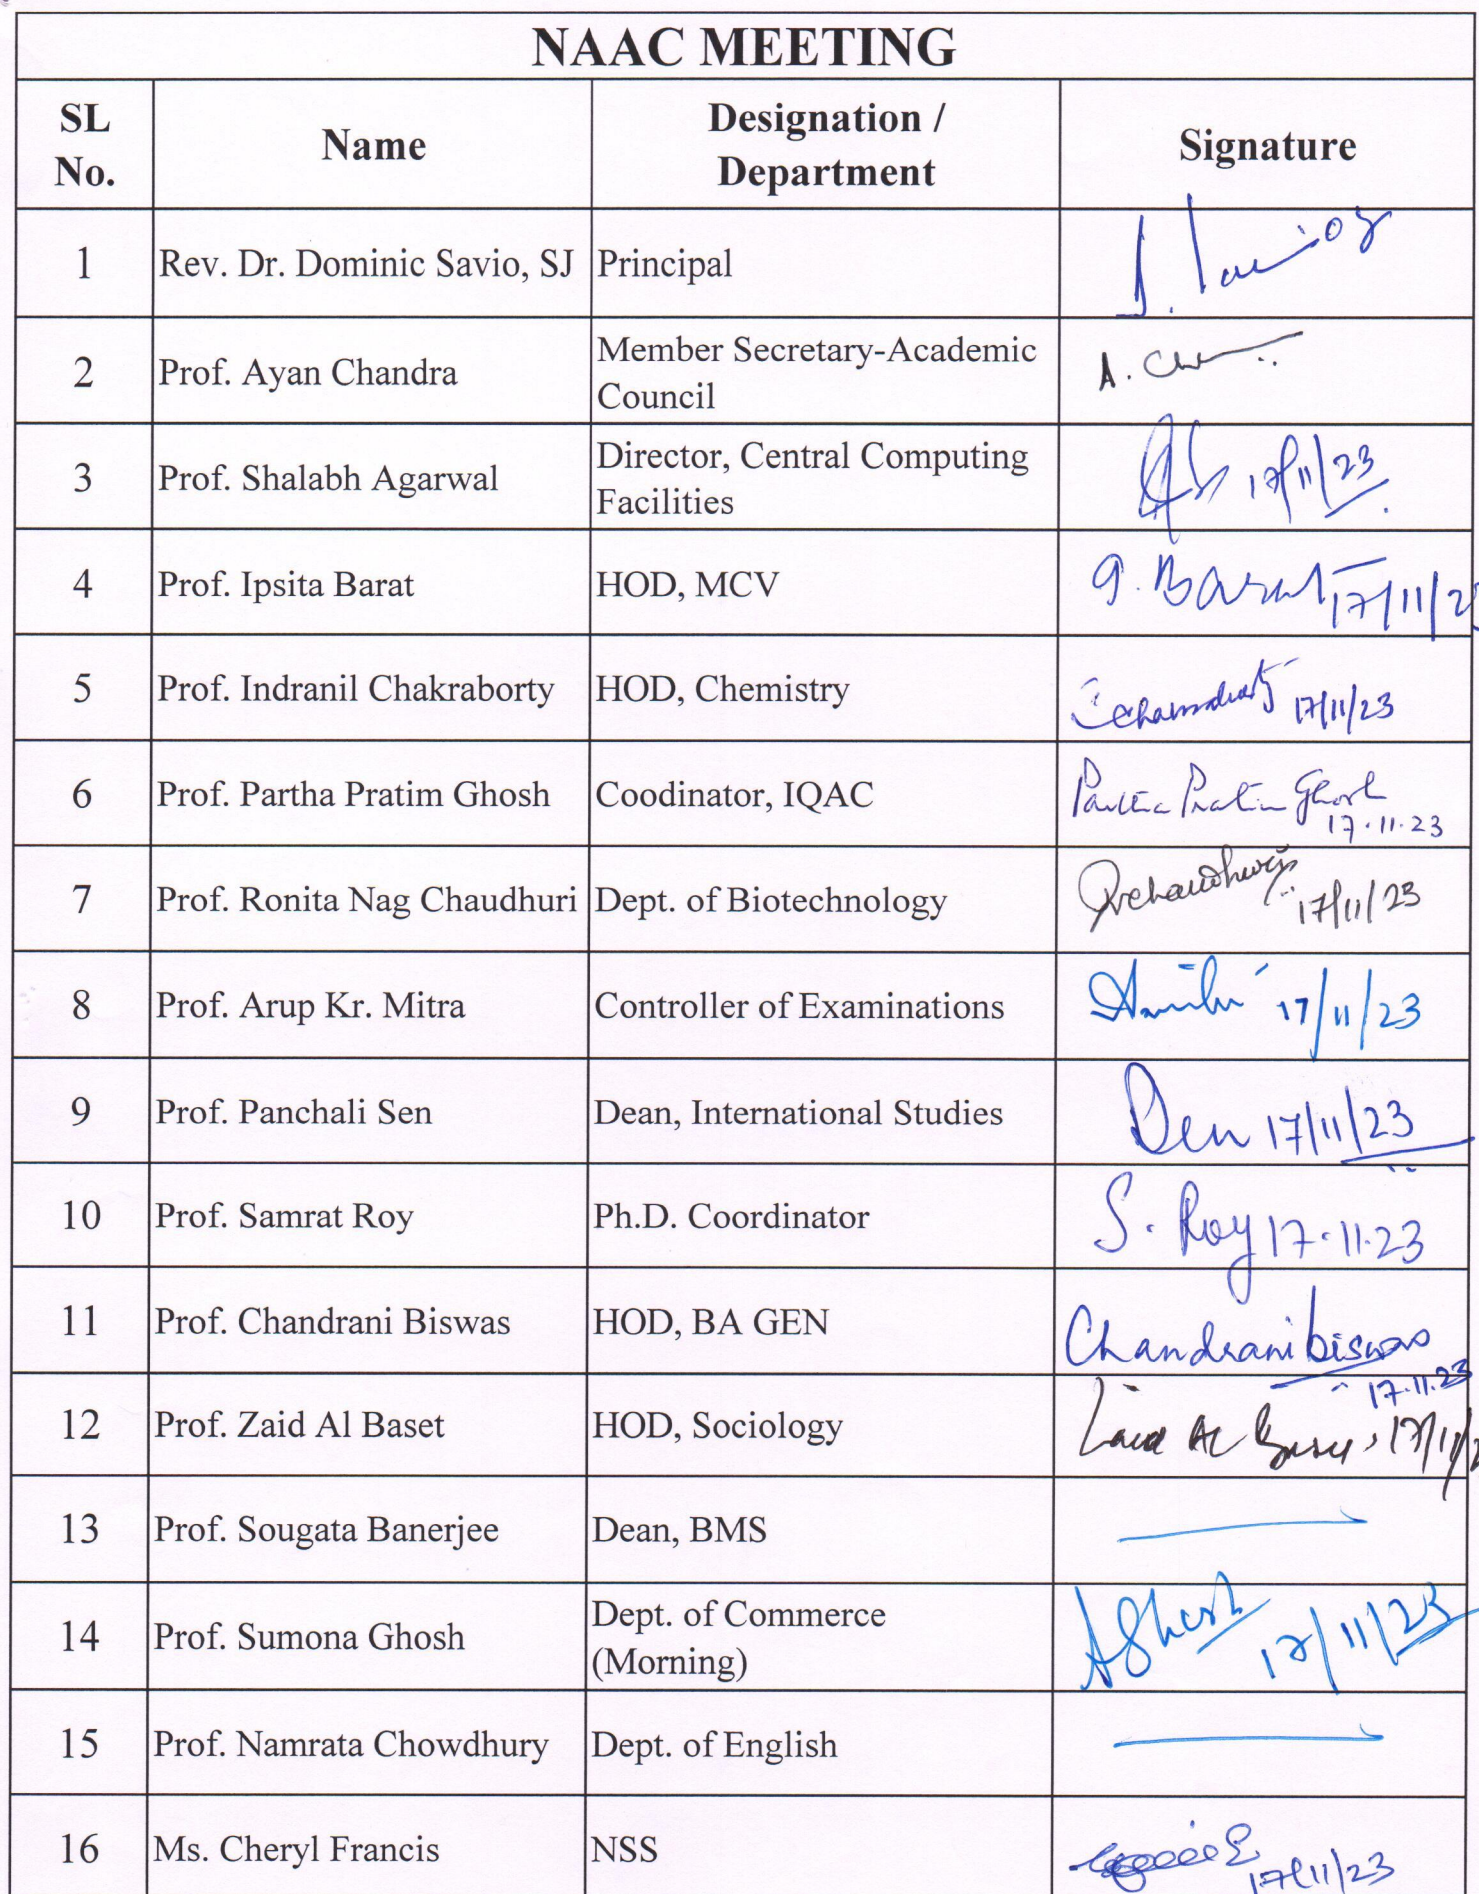 NAAC MEETING
SL No. Name Designation / Department Signature
1 Rev. Dr. Dominic Savio, SJ Principal
2 Prof. Ayan Chandra Member Secretary-Academic Council A.
3 Prof. Shalabh Agarwal Director, Central Computing Facilities 17/11/23
4 Prof. Ipsita Barat HOD, MCV I. Barat 17/11/2
5 Prof. Indranil Chakraborty HOD, Chemistry 17/11/23
6 Prof. Partha Pratim Ghosh Coodinator, IQAC Partha Pratim Ghosh 17.11.23
7 Prof. Ronita Nag Chaudhuri Dept. of Biotechnology 17/11/23
8 Prof. Arup Kr. Mitra Controller of Examinations 17/11/23
9 Prof. Panchali Sen Dean, International Studies 17/11/23
10 Prof. Samrat Roy Ph.D. Coordinator S. Roy 17.11.23
11 Prof. Chandrani Biswas HOD, BA GEN Chandrani biswas 17.11.23
12 Prof. Zaid Al Baset HOD, Sociology Zaid Al Baset, 17/11/2
13 Prof. Sougata Banerjee Dean, BMS
14 Prof. Sumona Ghosh Dept. of Commerce (Morning) 17/11/23
15 Prof. Namrata Chowdhury Dept. of English
16 Ms. Cheryl Francis NSS 17/11/23